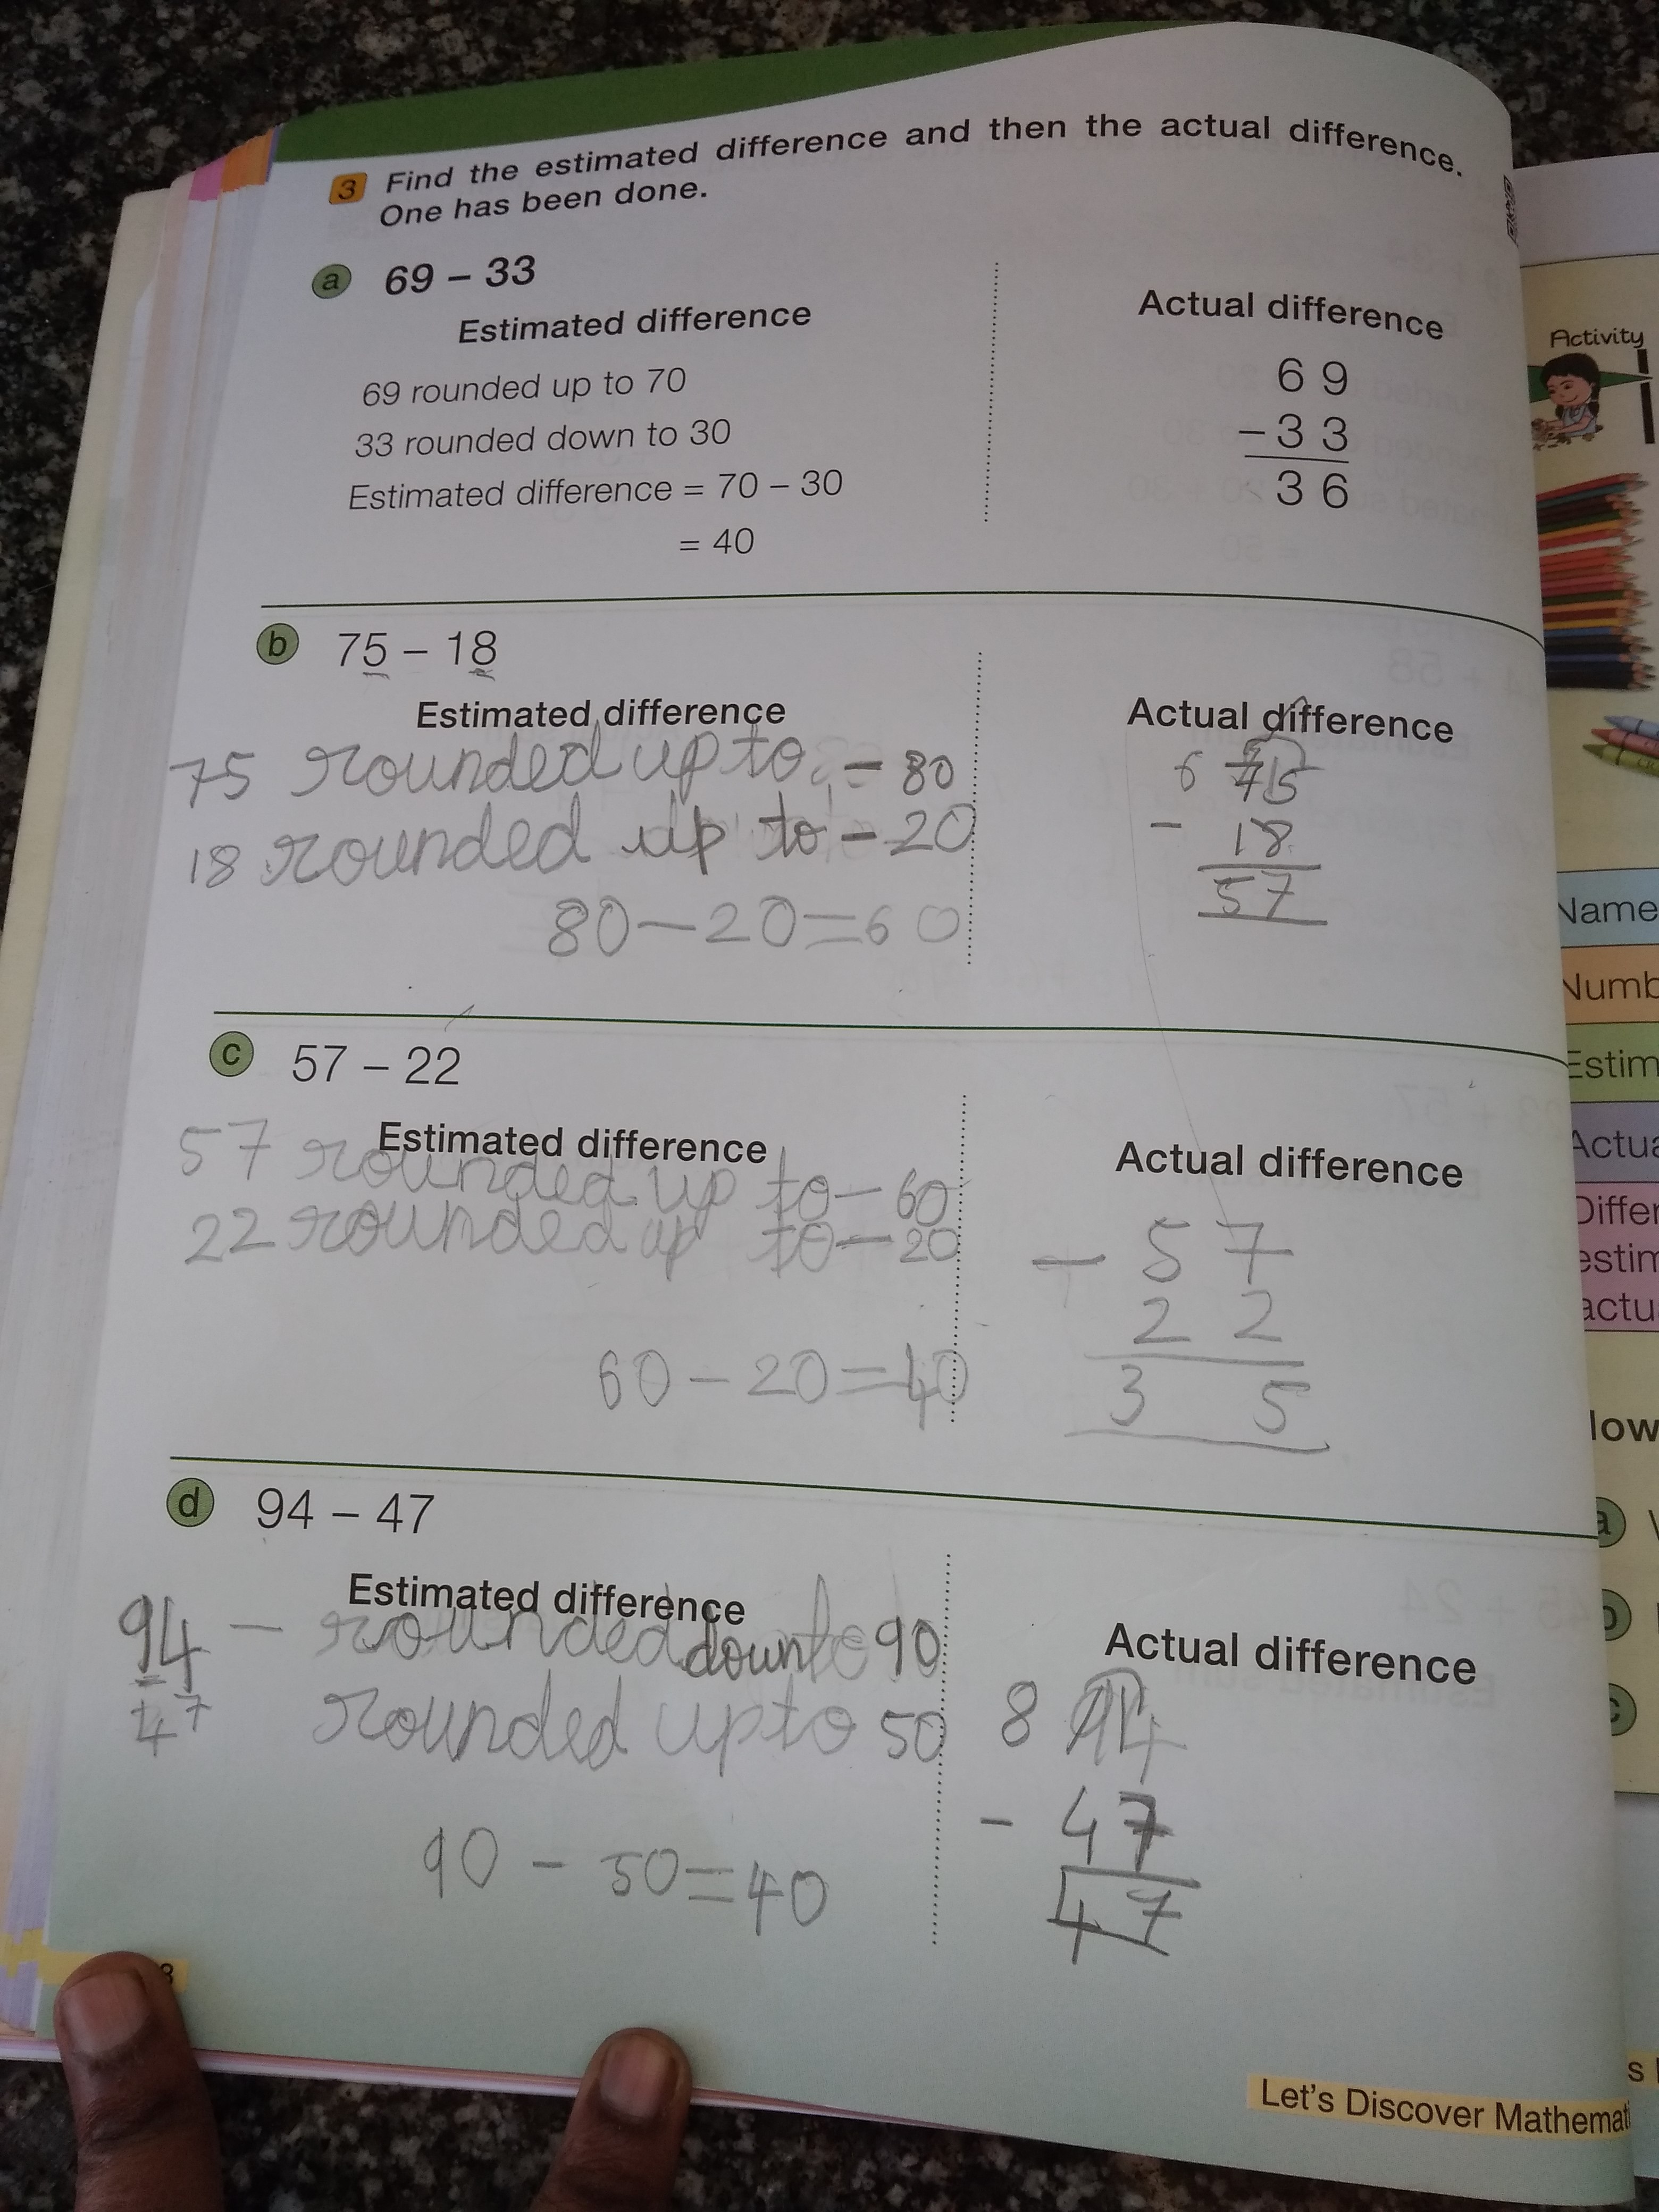 3 Find the estimated difference and then the actual difference.
One has been done.
a 69 – 33
Estimated difference
69 rounded up to 70
33 rounded down to 30
Estimated difference = 70 – 30
= 40
Actual difference
6 9
– 3 3
3 6
b 75 – 18
Estimated difference
75 rounded up to – 80
18 rounded up to – 20
80 – 20 = 60
Actual difference
6 75
– 18
57
c 57 – 22
Estimated difference
57 rounded up to – 60
22 rounded up to – 20
60 – 20 = 40
Actual difference
– 5 7
2 2
3 5
d 94 – 47
Estimated difference
94 – rounded down to 90
47 rounded up to 50
90 – 50 = 40
Actual difference
8 94
– 47
47
8
Let's Discover Mathemat
Activity
Name
Numb
Estim
Actua
Differ
estim
actu
low
a
b
c
s